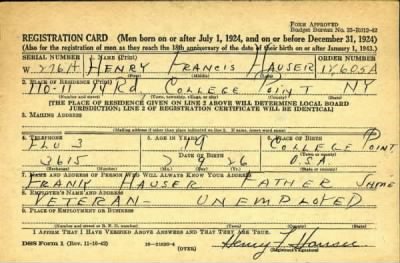 FORM APPROVED
BUDGET BUREAU NO. 33-R012-42
REGISTRATION CARD (Men born on or after July 1, 1924, and on or before December 31, 1924)
(Also for the registration of men as they reach the 18th anniversary of the date of their birth on or after January 1, 1943.)
SERIAL NUMBER 1. NAME (Print) ORDER NUMBER
W 276A HENRY FRANCIS HAUSER
2. PLACE OF RESIDENCE (Print)
RD COLLEGE POINT NY
[THE PLACE OF RESIDENCE GIVEN ON LINE 2 ABOVE WILL DETERMINE LOCAL BOARD
JURISDICTION; LINE 2 OF REGISTRATION CERTIFICATE WILL BE IDENTICAL]
3. MAILING ADDRESS
4. TELEPHONE 5. AGE IN YEARS 6. PLACE OF BIRTH
FLU 3 19 COLLEGE POINT
3615 7 9 26 U.S.A.
7. NAME AND ADDRESS OF PERSON WHO WILL ALWAYS KNOW YOUR ADDRESS
FRANK HAUSER FATHER SAME
8. EMPLOYER'S NAME AND ADDRESS
VETERAN - UNEMPLOYED
9. PLACE OF EMPLOYMENT OR BUSINESS
I AFFIRM THAT I HAVE VERIFIED ABOVE ANSWERS AND THAT THEY ARE TRUE.
DSS Form 1 (Rev. 11-16-42) (OVER) Henry F. Hauser